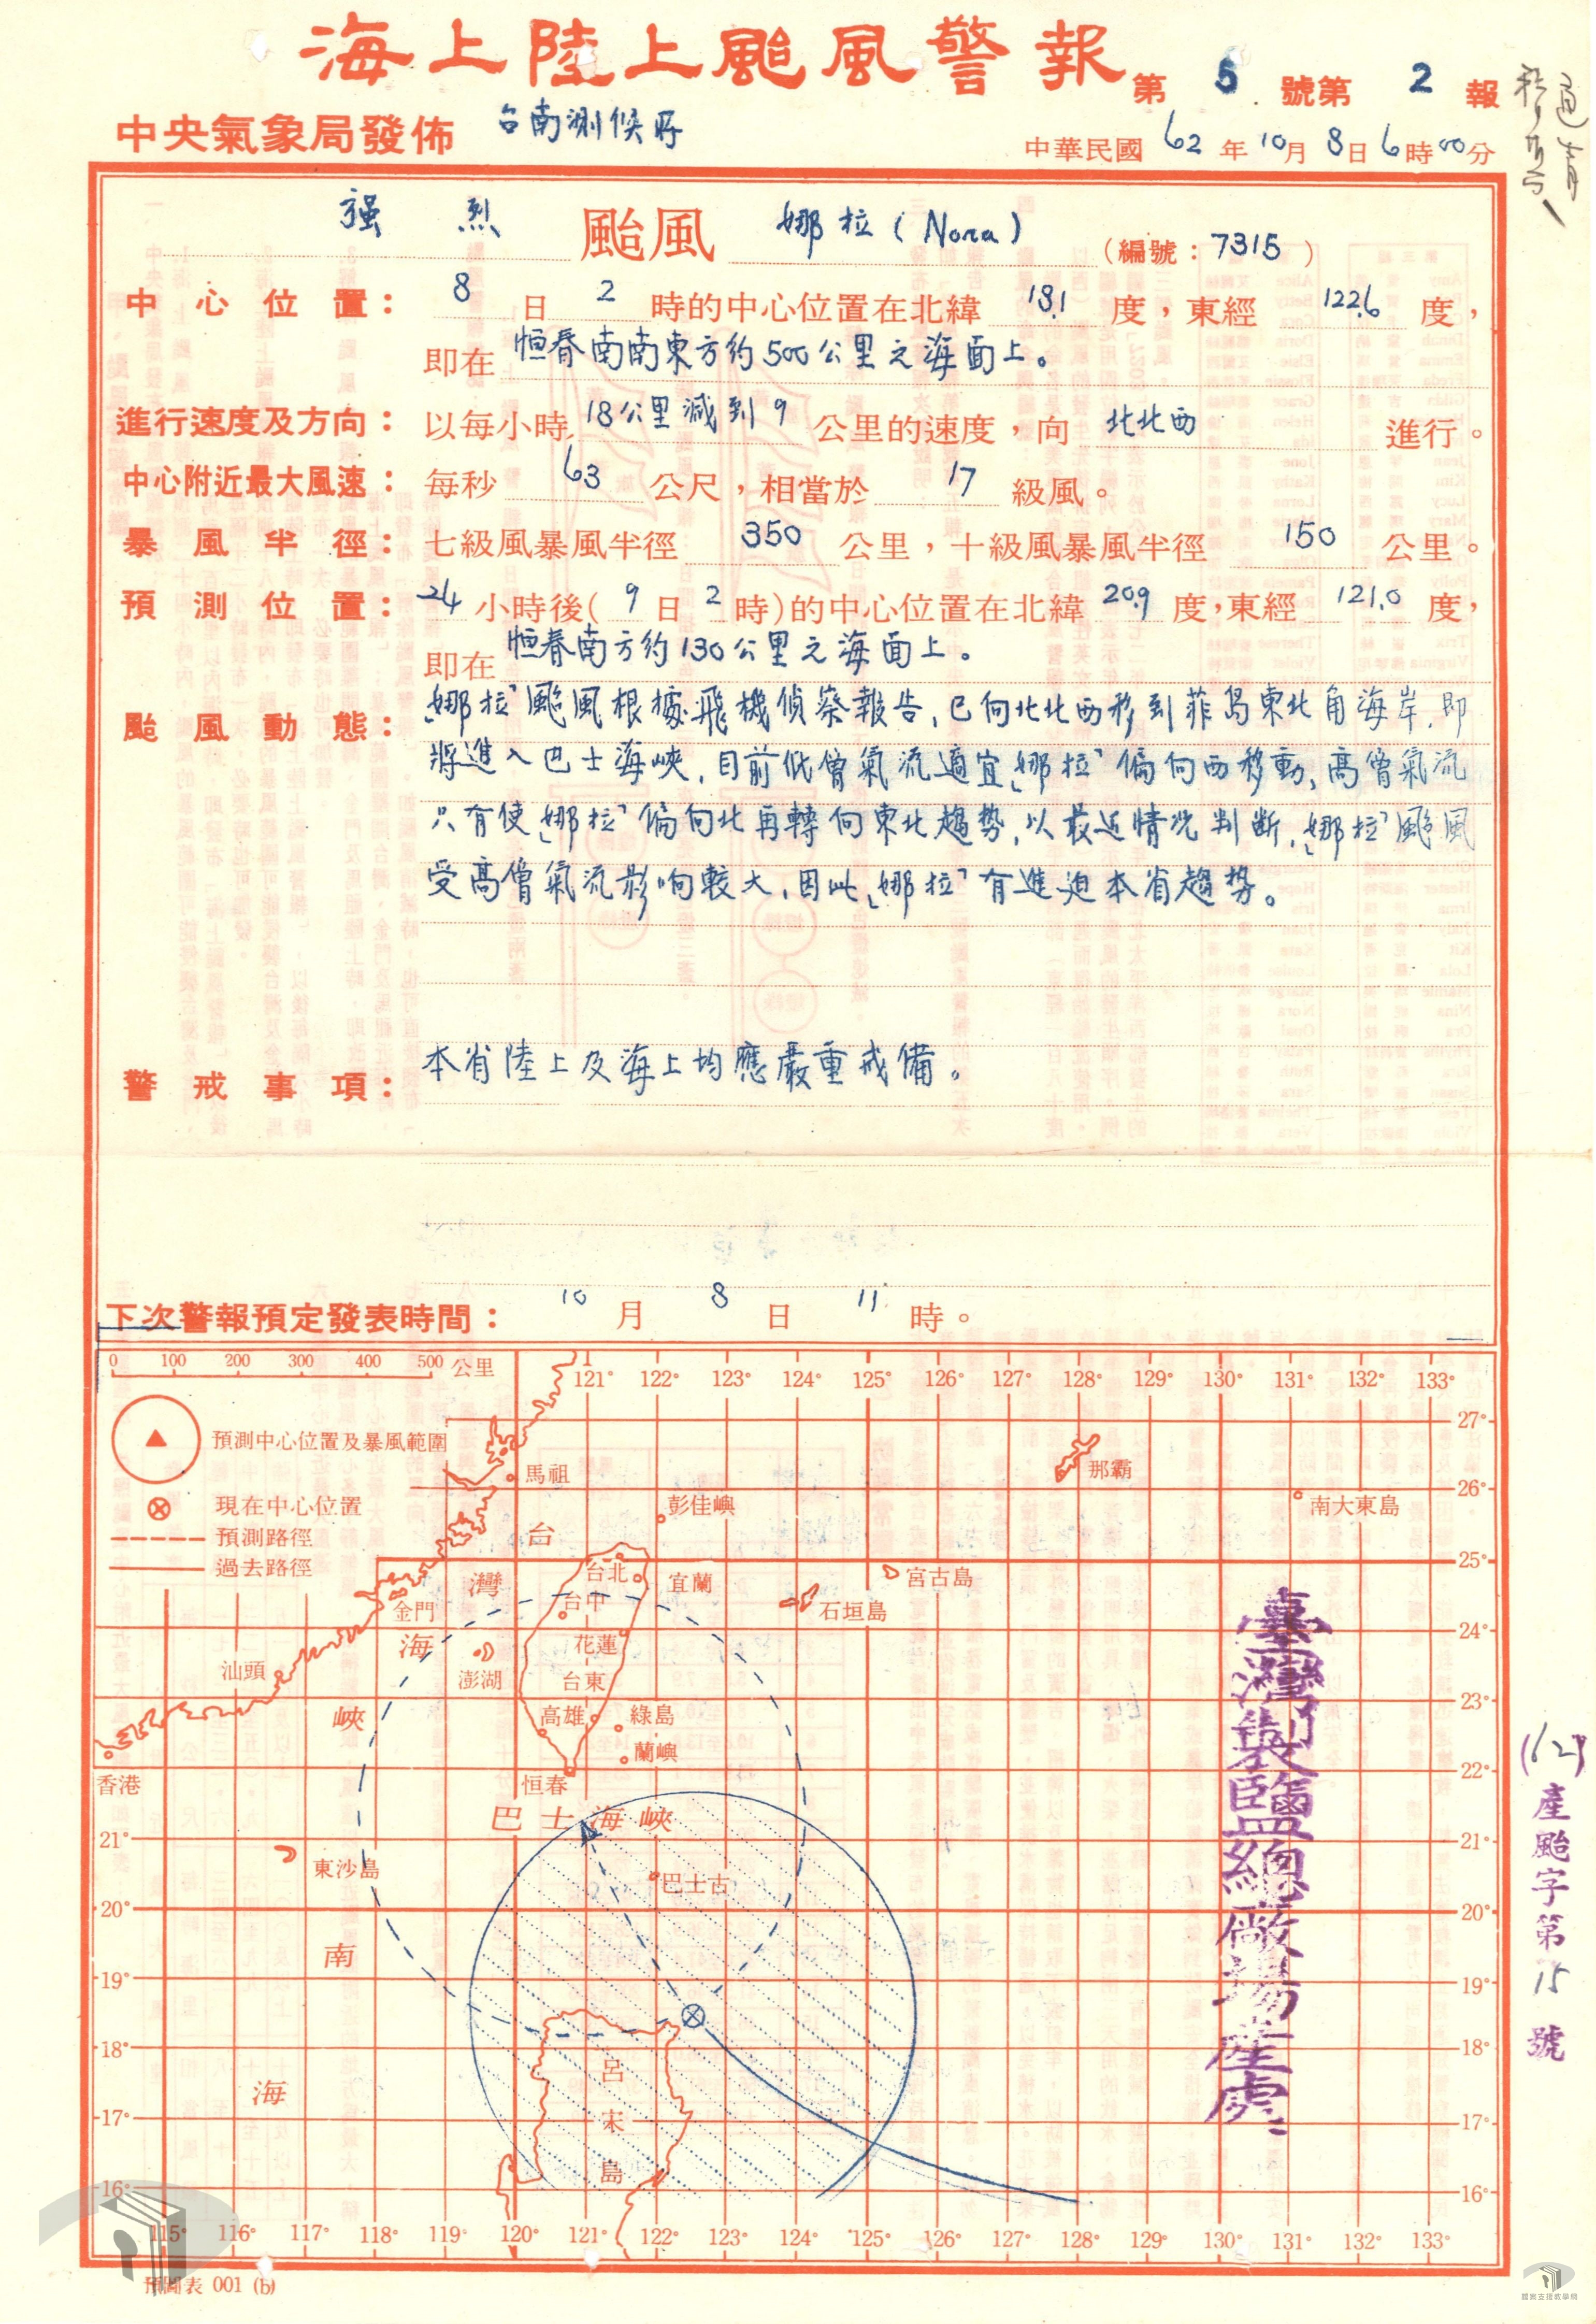 海上陸上颱風警報 第 5 號第 2 報
中央氣象局發佈 台南測候所 中華民國 62 年 10 月 8 日 6 時 00 分
強 烈 颱風 娜拉 (Nora) (編號：7315)
中心位置： 8 日 2 時的中心位置在北緯 18.1 度，東經 122.6 度，
即在 恒春南南東方約500公里之海面上。
進行速度及方向： 以每小時 18公里減到9 公里的速度，向 北北西 進行。
中心附近最大風速： 每秒 63 公尺，相當於 17 級風。
暴風半徑： 七級風暴風半徑 350 公里，十級風暴風半徑 150 公里。
預測位置： 24 小時後( 9 日 2 時)的中心位置在北緯 20.9 度，東經 121.0 度，
即在 恒春南方約130公里之海面上。
颱風動態： 「娜拉」颱風根據飛機偵察報告，已向北北西移到菲島東北角海岸，即
將進入巴士海峽，目前低層氣流適宜「娜拉」偏向西移動，高層氣流
只有使「娜拉」偏向北再轉向東北趨勢，以最近情況判斷，「娜拉」颱風
受高層氣流影响較大，因此「娜拉」有進迫本省趨勢。
警戒事項： 本省陸上及海上均應嚴重戒備。
下次警報預定發表時間： 10 月 8 日 11 時。
0 100 200 300 400 500 公里
121° 122° 123° 124° 125° 126° 127° 128° 129° 130° 131° 132° 133°
預測中心位置及暴風範圍
現在中心位置
預測路徑
過去路徑
27°
26°
25°
24°
23°
22°
21° 21°
20° 20°
19° 19°
18° 18°
17° 17°
16° 16°
馬祖
那霸
彭佳嶼
南大東島
台灣海峽
台北
宜蘭
宮古島
金門
台中
石垣島
花蓮
汕頭
澎湖
台東
高雄
綠島
蘭嶼
香港
恒春
巴士海峽
東沙島
巴士古
南海
呂宋島
115° 116° 117° 118° 119° 120° 121° 122° 123° 124° 125° 126° 127° 128° 129° 130° 131° 132° 133°
臺灣製鹽總廠場產處
(62)產颱字第15號
預圖表 001 (b)
檔案支援教學網